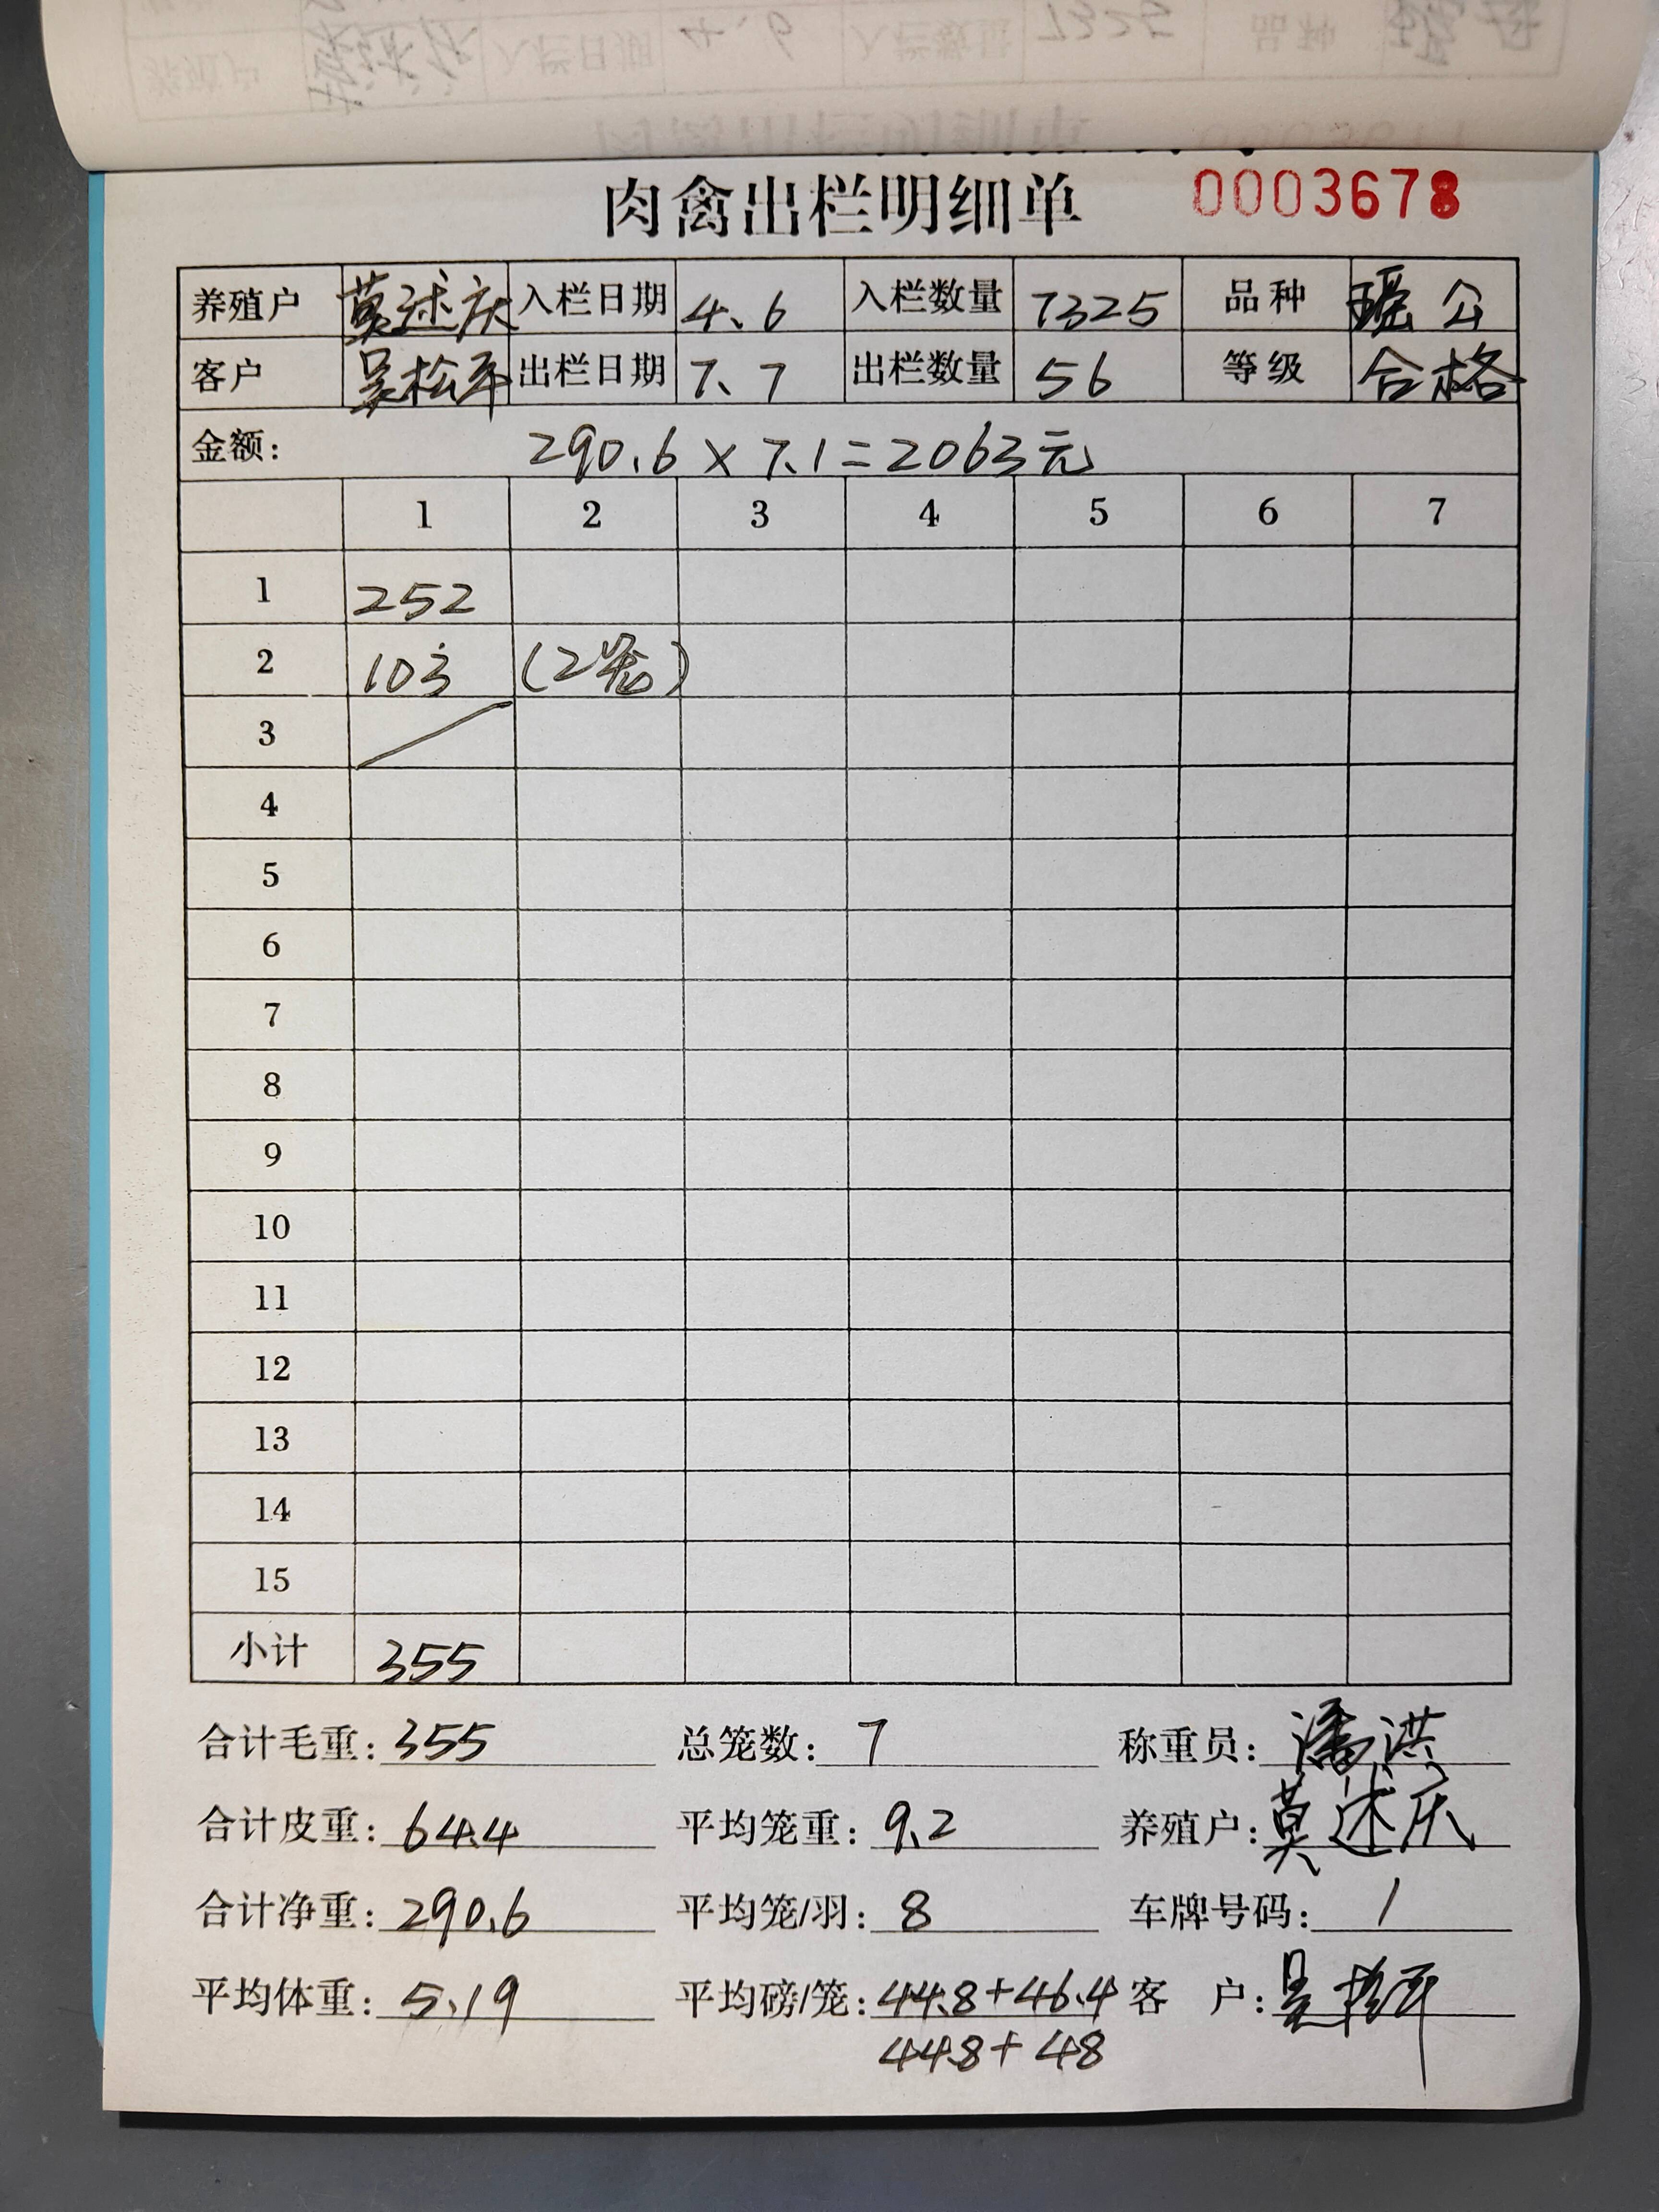 肉禽出栏明细单 0003678
养殖户 莫述庆 入栏日期 4.6 入栏数量 7325 品种 瑶公
客户 吴松平 出栏日期 7.7 出栏数量 56 等级 合格
金额: 290.6×7.1=2063元
1 2 3 4 5 6 7
1 252
2 103 (2笼)
3
4
5
6
7
8
9
10
11
12
13
14
15
小计 355
合计毛重: 355 总笼数: 7 称重员: 潘洪
合计皮重: 64.4 平均笼重: 9.2 养殖户: 莫述庆
合计净重: 290.6 平均笼/羽: 8 车牌号码: /
平均体重: 5.19 平均磅/笼: 44.8+46.4 客 户: 吴松平
44.8+48